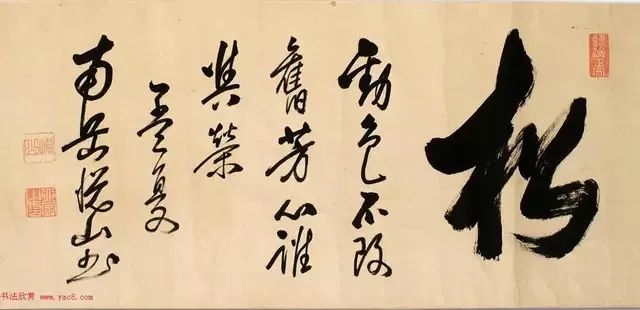 松
勁色不改
舊芳心誰
與榮
孟夏
南岳悅山書
书法欣赏 www.yac8.com